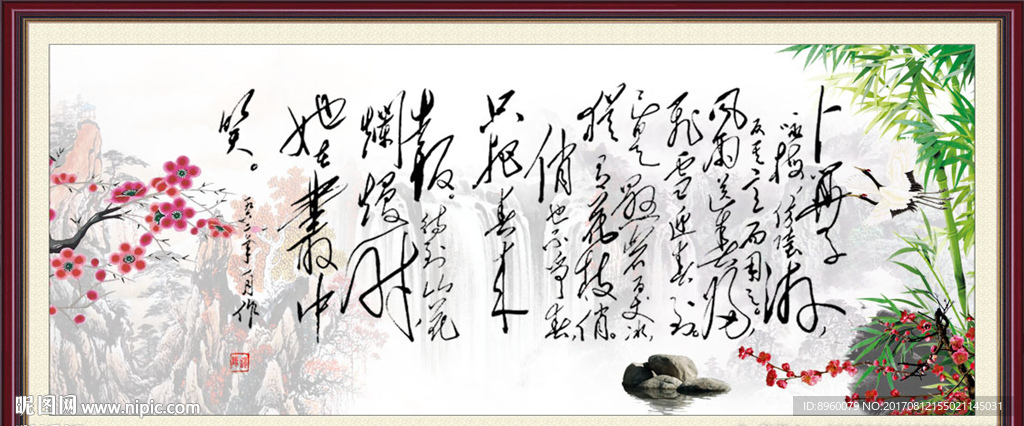 卜算子
咏梅,依陸游,
反其意而用之。
風雨送春歸,
飛雪迎春到
已是懸崖百丈冰,
猶有花枝俏。
俏也不爭春,
只把春來
報。待到山花
爛熳時,
她在叢中
笑。
一九六二年一月作
昵图网 www.nipic.com
ID:8960079 NO:20170812155021145031